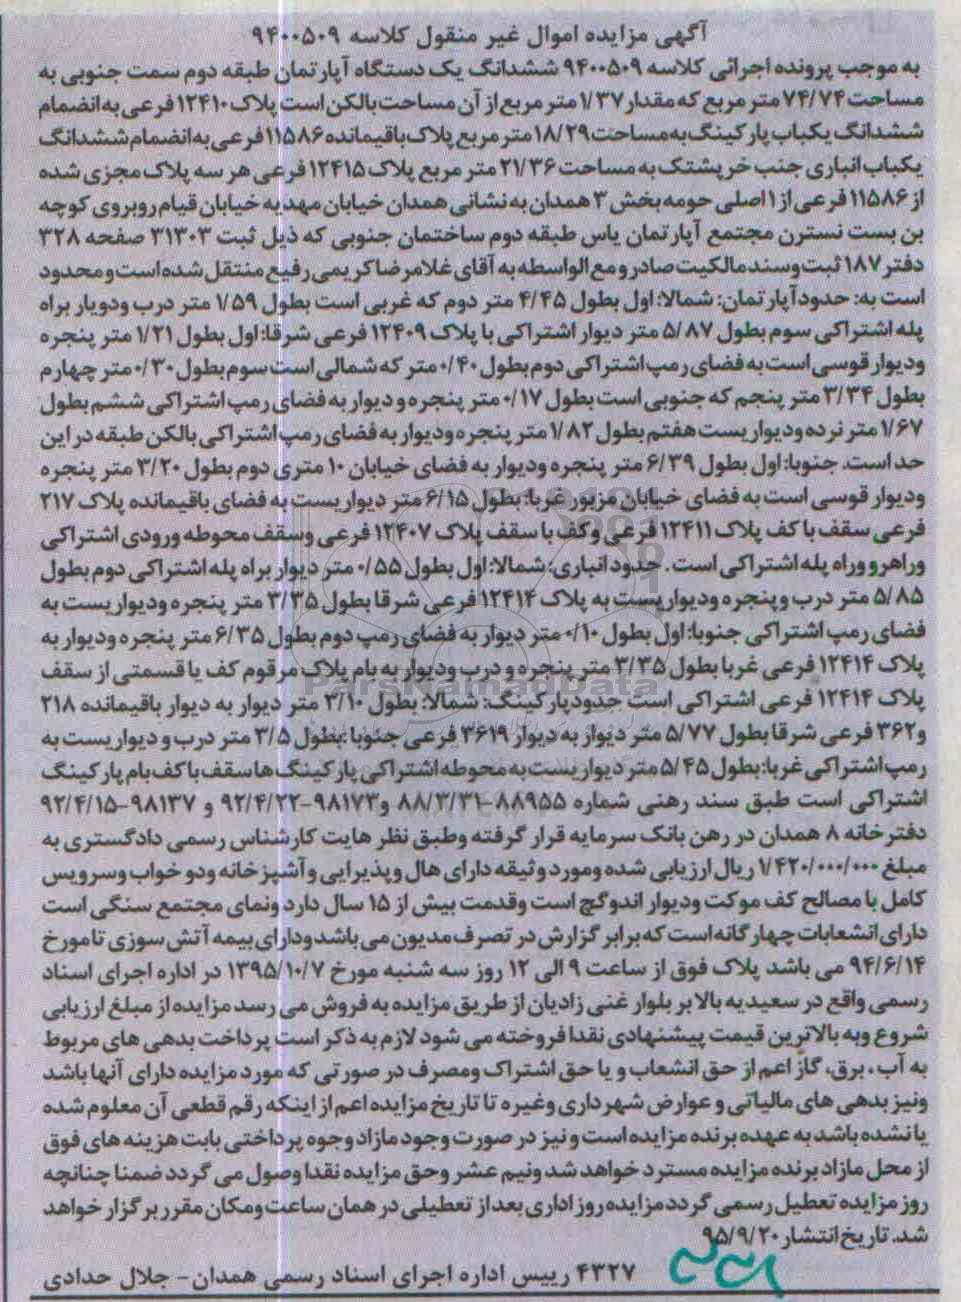 آگهی مزایده اموال غیر منقول کلاسه ۹۴۰۰۵۰۹
به موجب پرونده اجرائی کلاسه ۹۴۰۰۵۰۹ ششدانگ یک دستگاه آپارتمان طبقه دوم سمت جنوبی به
مساحت ۷۴/۷۴ متر مربع که مقدار ۱/۳۷ متر مربع از آن مساحت بالکن است پلاک ۱۲۴۱۰ فرعی به انضمام
ششدانگ یکباب پارکینگ به مساحت ۱۸/۲۹ متر مربع پلاک باقیمانده ۱۱۵۸۶ فرعی به انضمام ششدانگ
یکباب انباری جنب خرپشتک به مساحت ۲۱/۳۶ متر مربع پلاک ۱۲۴۱۵ فرعی هر سه پلاک مجزی شده
از ۱۱۵۸۶ فرعی از ۱ اصلی حومه بخش ۳ همدان به نشانی همدان خیابان مهدیه خیابان قیام روبروی کوچه
بن بست نسترن مجتمع آپارتمان یاس طبقه دوم ساختمان جنوبی که ذیل ثبت ۳۱۳۰۳ صفحه ۳۲۸
دفتر ۱۸۷ ثبت وسند مالکیت صادر و مع الواسطه به آقای غلامرضا کریمی رفیع منتقل شده است و محدود
است به: حدود آپارتمان: شمالا: اول بطول ۴/۴۵ متر دوم که غربی است بطول ۱/۵۹ متر درب ودویار براه
پله اشتراکی سوم بطول ۵/۸۷ متر دیوار اشتراکی با پلاک ۱۲۴۰۹ فرعی شرقا: اول بطول ۱/۲۱ متر پنجره
ودیوار قوسی است به فضای رمپ اشتراکی دوم بطول ۰/۴۰ متر که شمالی است سوم بطول ۰/۳۰ متر چهارم
بطول ۳/۳۴ متر پنجم که جنوبی است بطول ۰/۱۷ متر پنجره و دیوار به فضای رمپ اشتراکی ششم بطول
۱/۶۷ متر نرده ودیواریست هفتم بطول ۱/۸۲ متر پنجره ودیوار به فضای رمپ اشتراکی بالکن طبقه در این
حد است. جنوبا: اول بطول ۶/۳۹ متر پنجره ودیوار به فضای خیابان ۱۰ متری دوم بطول ۳/۲۰ متر پنجره
ودیوار قوسی است به فضای خیابان مزبور غربا: بطول ۶/۱۵ متر دیواریست به فضای باقیمانده پلاک ۲۱۷
فرعی سقف با کف پلاک ۱۲۴۱۱ فرعی وکف با سقف پلاک ۱۲۴۰۷ فرعی وسقف محوطه ورودی اشتراکی
وراهرو وراه پله اشتراکی است. حدود انباری: شمالا: اول بطول ۰/۵۵ متر دیوار براه پله اشتراکی دوم بطول
۵/۸۵ متر درب و پنجره ودیواریست به پلاک ۱۲۴۱۴ فرعی شرقا بطول ۳/۳۵ متر پنجره ودیواریست به
فضای رمپ اشتراکی جنوبا: اول بطول ۰/۱۰ متر دیوار به فضای رمپ دوم بطول ۶/۳۵ متر پنجره ودیوار به
پلاک ۱۲۴۱۴ فرعی غربا بطول ۳/۳۵ متر پنجره و درب ودیوار به بام پلاک مرقوم کف با قسمتی از سقف
پلاک ۱۲۴۱۴ فرعی اشتراکی است حدودپارکینگ: شمالا: بطول ۳/۱۰ متر دیوار به دیوار باقیمانده ۲۱۸
و ۳۶۲ فرعی شرقا بطول ۵/۷۷ متر دیوار به دیوار ۳۶۱۹ فرعی جنوبا: بطول ۳/۵ متر درب و دیواریست به
رمپ اشتراکی غربا: بطول ۵/۴۵ متر دیواریست به محوطه اشتراکی پارکینگ ها سقف با کف بام پارکینگ
اشتراکی است طبق سند رهنی شماره ۸۸۹۵۵-۸۸/۳/۳۱ و ۹۸۱۷۳-۹۲/۴/۲۲ و ۹۸۱۳۷-۹۲/۴/۱۵
دفترخانه ۸ همدان در رهن بانک سرمایه قرار گرفته وطبق نظر هایت کارشناس رسمی دادگستری به
مبلغ ۱/۴۲۰/۰۰۰/۰۰۰ ریال ارزیابی شده ومورد وثیقه دارای هال وپذیرایی و آشپزخانه ودو خواب وسرویس
کامل با مصالح کف موکت ودیوار اندوگچ است وقدمت بیش از ۱۵ سال دارد ونمای مجتمع سنگی است
دارای انشعابات چهارگانه است که برابر گزارش در تصرف مدیون می باشد ودارای بیمه آتش سوزی تا مورخ
۹۴/۶/۱۴ می باشد پلاک فوق از ساعت ۹ الی ۱۲ روز سه شنبه مورخ ۱۳۹۵/۱۰/۷ در اداره اجرای اسناد
رسمی واقع در سعیدیه بالا بر بلوار غنی زادیان از طریق مزایده به فروش می رسد مزایده از مبلغ ارزیابی
شروع وبه بالاترین قیمت پیشنهادی نقدا فروخته می شود لازم به ذکر است پرداخت بدهی های مربوط
به آب، برق، گاز اعم از حق انشعاب و یا حق اشتراک ومصرف در صورتی که مورد مزایده دارای آنها باشد
ونیز بدهی های مالیاتی و عوارض شهرداری وغیره تا تاریخ مزایده اعم از اینکه رقم قطعی آن معلوم شده
یا نشده باشد به عهده برنده مزایده است و نیز در صورت وجود مازاد وجوه پرداختی بابت هزینه های فوق
از محل مازاد برنده مزایده مسترد خواهد شد ونیم عشر وحق مزایده نقدا وصول می گردد ضمنا چنانچه
روز مزایده تعطیل رسمی گردد مزایده روز اداری بعد از تعطیلی در همان ساعت ومکان مقرر برگزار خواهد
شد. تاریخ انتشار ۹۵/۹/۲۰
۴۳۲۷ رییس اداره اجرای اسناد رسمی همدان - جلال حدادی
ParsNamadData